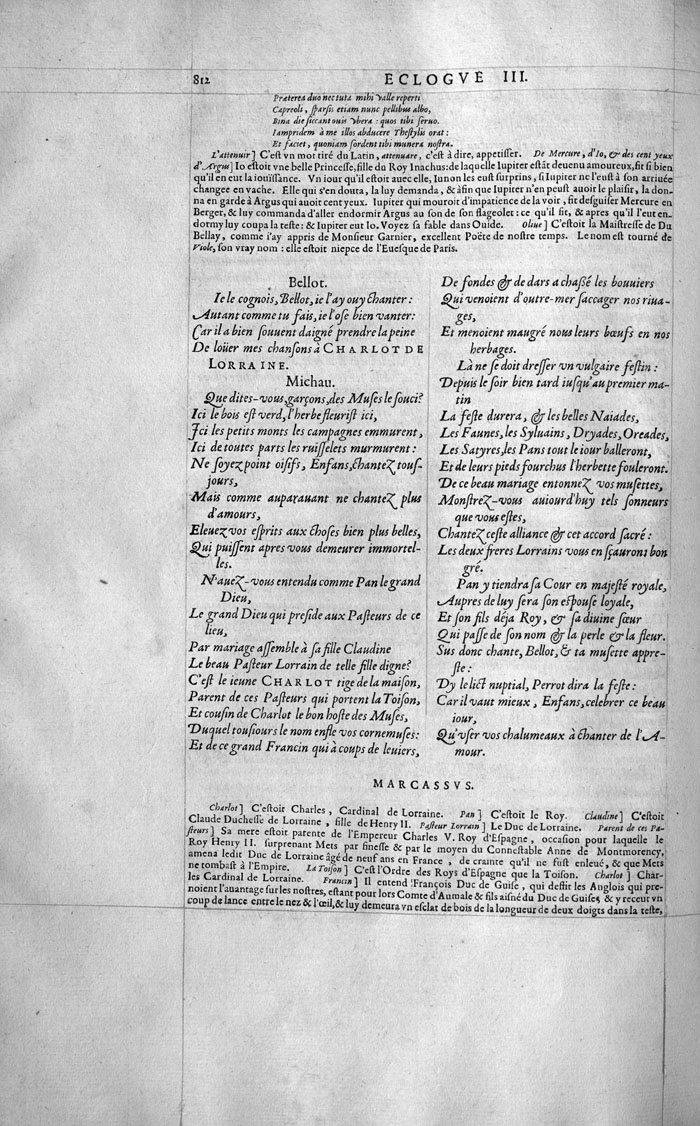 812
ECLOGVE III.
Præterea duo nec tuta mihi valle reperti
Capreoli, sparsis etiam nunc pellibus albo,
Bina die siccant ouis vbera: quos tibi seruo.
Iampridem à me illos abducere Thestylis orat:
Et faciet, quoniam sordent tibi munera nostra.
L'attenuir] C'est vn mot tiré du Latin, attenuare, c'est à dire, appetisser. De Mercure, d'Io, & des cent yeux
d'Argus] Io estoit vne belle Princesse, fille du Roy Inachus: de laquelle Iupiter estãt deuenu amoureux, fit si bien
qu'il en eut la iouissance. Vn iour qu'il estoit auec elle, Iunon les eust surprins, si Iupiter ne l'eust à son arriuée
changee en vache. Elle qui s'en douta, la luy demanda, & afin que Iupiter n'en peust auoir le plaisir, la don-
na en garde à Argus qui auoit cent yeux. Iupiter qui mouroit d'impatience de la voir, fit desguiser Mercure en
Berger, & luy commanda d'aller endormir Argus au son de son flageolet: ce qu'il fit, & apres qu'il l'eut en-
dormy luy coupa la teste: & Iupiter eut Io. Voyez sa fable dans Ouide. Oliue] C'estoit la Maistresse de Du
Bellay, comme i'ay appris de Monsieur Garnier, excellent Poëte de nostre temps. Le nom est tourné de
Viole, son vray nom: elle estoit niepce de l'Euesque de Paris.
Bellot.
Ie le cognois, Bellot, ie l'ay ouy chanter:
Autant comme tu fais, ie l'ose bien vanter:
Car il a bien souuent daigné prendre la peine
De loüer mes chansons à CHARLOT DE
LORRAINE.
Michau.
Que dites-vous, garçons, des Muses le souci?
Ici le bois est verd, l'herbe fleurist ici,
Ici les petits monts les campagnes emmurent,
Ici de toutes parts les ruisselets murmurent:
Ne soyez point oisifs, Enfans, chantez tous-
jours,
Mais comme auparauant ne chantez plus
d'amours,
Eleuez vos esprits aux choses bien plus belles,
Qui puissent apres vous demeurer immortel-
les.
N'auez-vous entendu comme Pan le grand
Dieu,
Le grand Dieu qui preside aux Pasteurs de ce
lieu,
Par mariage assemble à sa fille Claudine
Le beau Pasteur Lorrain de telle fille digne?
C'est le ieune CHARLOT tige de la maison,
Parent de ces Pasteurs qui portent la Toison,
Et cousin de Charlot le bon hoste des Muses,
Duquel tousiours le nom enfle vos cornemuses:
Et de ce grand Francin qui à coups de leuiers,
De fondes & de dars a chassé les bouuiers
Qui venoient d'outre-mer saccager nos riua-
ges,
Et menoient maugré nous leurs bœufs en nos
herbages.
Là ne se doit dresser vn vulgaire festin:
Depuis le soir bien tard iusqu'au premier ma-
tin
La feste durera, & les belles Naiades,
Les Faunes, les Syluains, Dryades, Oreades,
Les Satyres, les Pans tout le iour balleront,
Et de leurs pieds fourchus l'herbette fouleront.
De ce beau mariage entonnez vos musettes,
Monstrez-vous auiourd'huy tels sonneurs
que vous estes,
Chantez ceste alliance & cet accord sacré:
Les deux freres Lorrains vous en sçauront bon
gré.
Pan y tiendra sa Cour en majesté royale,
Aupres de luy sera son espouse loyale,
Et son fils déja Roy, & sa diuine sœur
Qui passe de son nom & la perle & la fleur.
Sus donc chante, Bellot, & ta musette appre-
ste:
Dy le lict nuptial, Perrot dira la feste:
Car il vaut mieux, Enfans, celebrer ce beau
iour,
Qu'vser vos chalumeaux à chanter de l'A-
mour.
MARCASSVS.
Charlot] C'estoit Charles, Cardinal de Lorraine. Pan] C'estoit le Roy. Claudine] C'estoit
Claude Duchesse de Lorraine, fille de Henry II. Pasteur Lorrain] Le Duc de Lorraine. Parent de ces Pa-
steurs] Sa mere estoit parente de l'Empereur Charles V. Roy d'Espagne, occasion pour laquelle le
Roy Henry II. surprenant Mets par finesse & par le moyen du Connestable Anne de Montmorency,
amena ledit Duc de Lorraine âgé de neuf ans en France, de crainte qu'il ne fust enleué, & que Mets
ne tombast à l'Empire. La Toison] C'est l'Ordre des Roys d'Espagne que la Toison. Charlot] Char-
les Cardinal de Lorraine. Francin] Il entend François Duc de Guise, qui desfit les Anglois qui pre-
noient l'auantage sur les nostres, estant pour lors Comte d'Aumale & fils aisné du Duc de Guise; & y receut vn
coup de lance entre le nez & l'œil, & luy demeura vn esclat de bois de la longueur de deux doigts dans la teste,